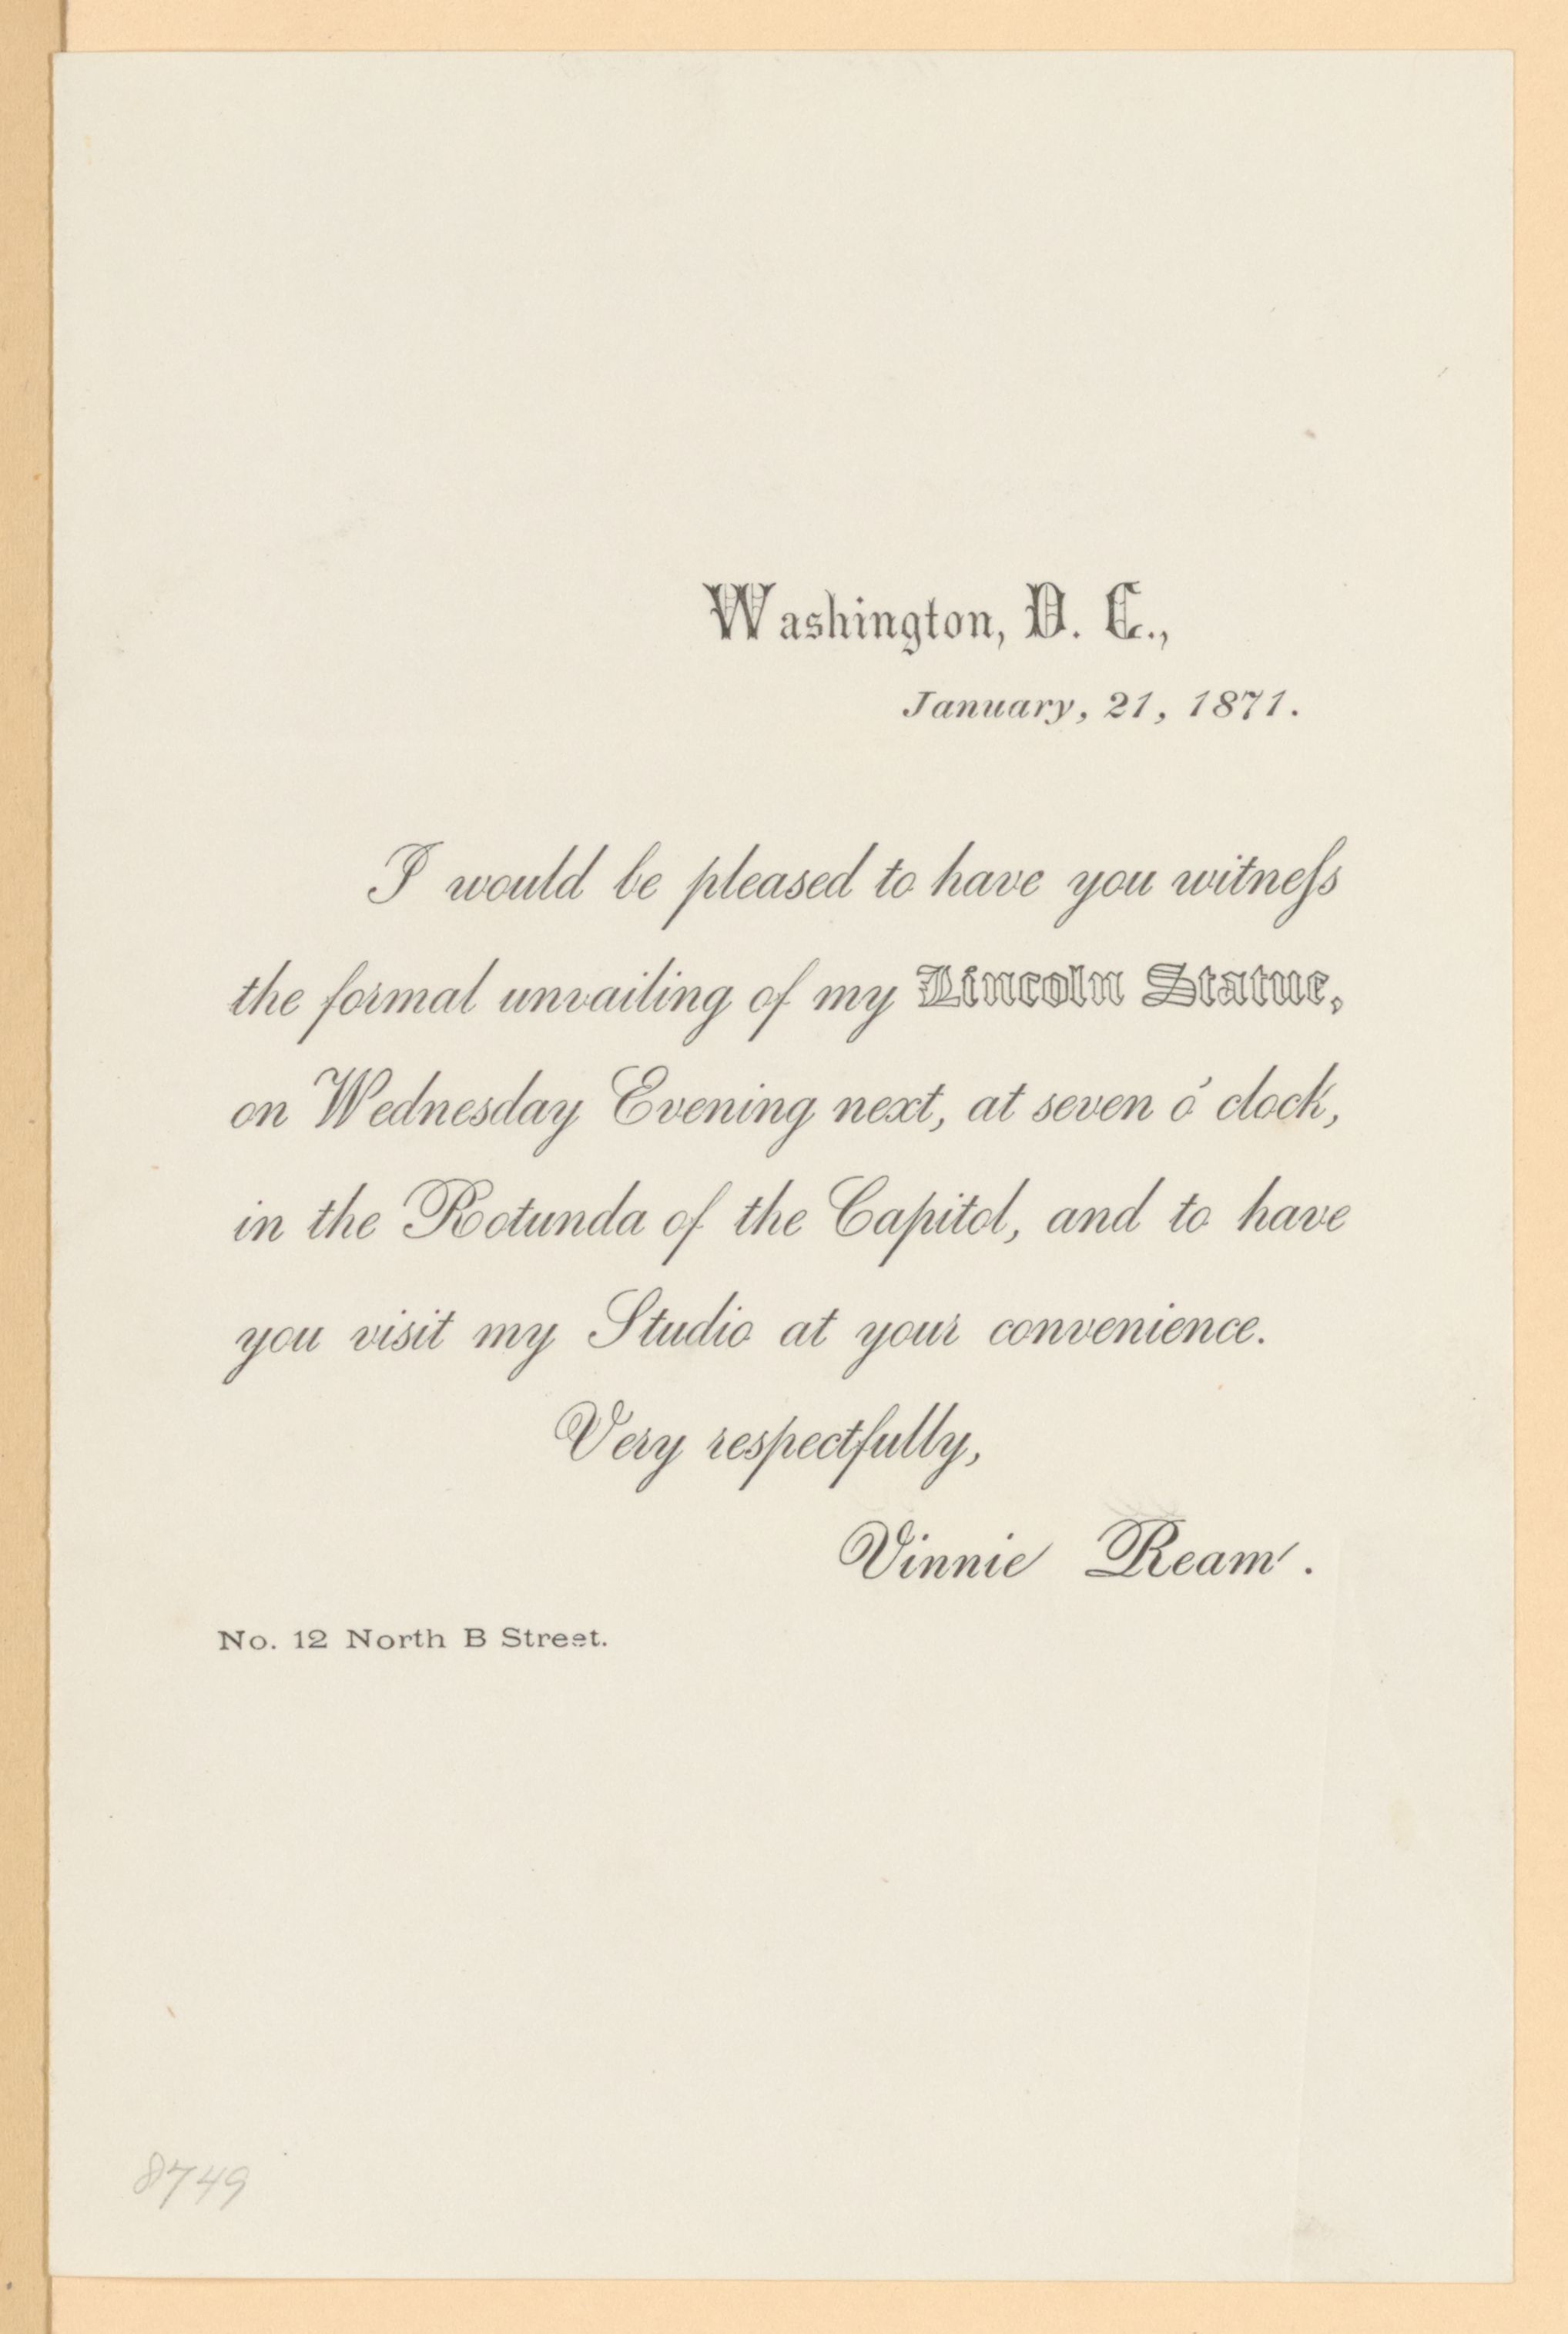 Washington, D. C.,
January, 21, 1871.
I would be pleased to have you witneſs
the formal unvailing of my Lincoln Statue,
on Wednesday Evening next, at seven o' clock,
in the Rotunda of the Capitol, and to have
you visit my Studio at your convenience.
Very respectfully,
Vinnie Ream.
No. 12 North B Street.
8749